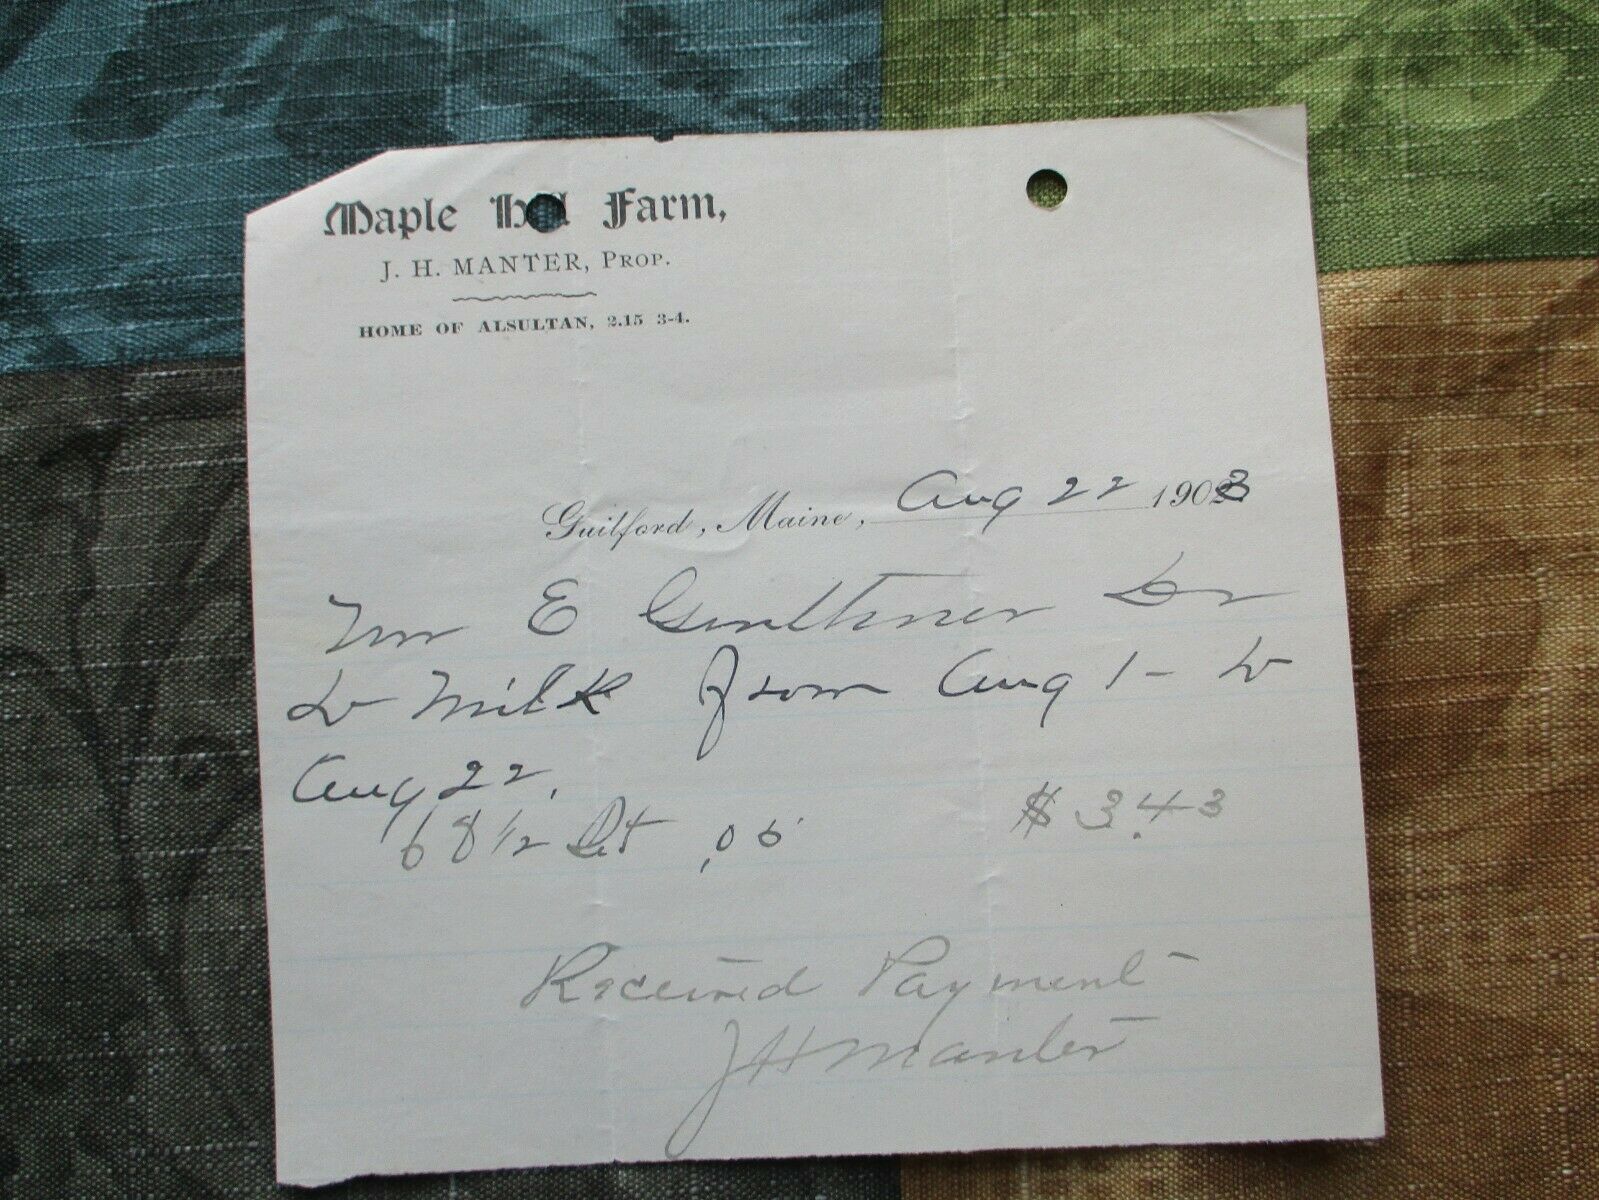 Maple Hill Farm,
J. H. MANTER, PROP.
HOME OF ALSULTAN, 2.15 3-4.
Guilford, Maine, Aug 22 1903
E Genthner Dr
to Milk from Aug 1 - to
Aug 22.
68 1/2 .05 $3.43
Received Payment
J H Manter